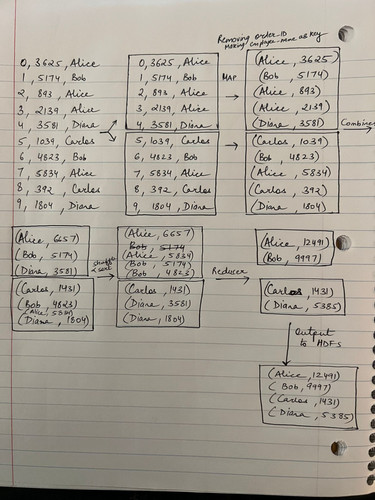 Removing order-ID
Making employee-name as key
0, 3625, Alice
1, 5174, Bob
2, 893, Alice
3, 2139, Alice
4, 3581, Diana
5, 1039, Carlos
6, 4823, Bob
7, 5834, Alice
8, 392, Carlos
9, 1804, Diana
0, 3625, Alice
1, 5174, Bob
2, 893, Alice
3, 2139, Alice
4, 3581, Diana
5, 1039, Carlos
6, 4823, Bob
7, 5834, Alice
8, 392, Carlos
9, 1804, Diana
MAP
(Alice, 3625)
(Bob, 5174)
(Alice, 893)
(Alice, 2139)
(Diana, 3581)
(Carlos, 1039)
(Bob, 4823)
(Alice, 5834)
(Carlos, 392)
(Diana, 1804)
Combiner
(Alice, 6657)
(Bob, 5174)
(Diana, 3581)
(Carlos, 1431)
(Bob, 4823)
(Alice, 5834)
(Diana, 1804)
shuffle
& sort
(Alice, 6657)
Bob, 5174
(Alice, 5834)
(Bob, 5174)
(Bob, 4823)
(Carlos, 1431)
(Diana, 3581)
(Diana, 1804)
Reducer
(Alice, 12491)
(Bob, 9997)
(Carlos, 1431)
(Diana, 5385)
Output
to HDFS
(Alice, 12491)
(Bob, 9997)
(Carlos, 1431)
(Diana, 5385)